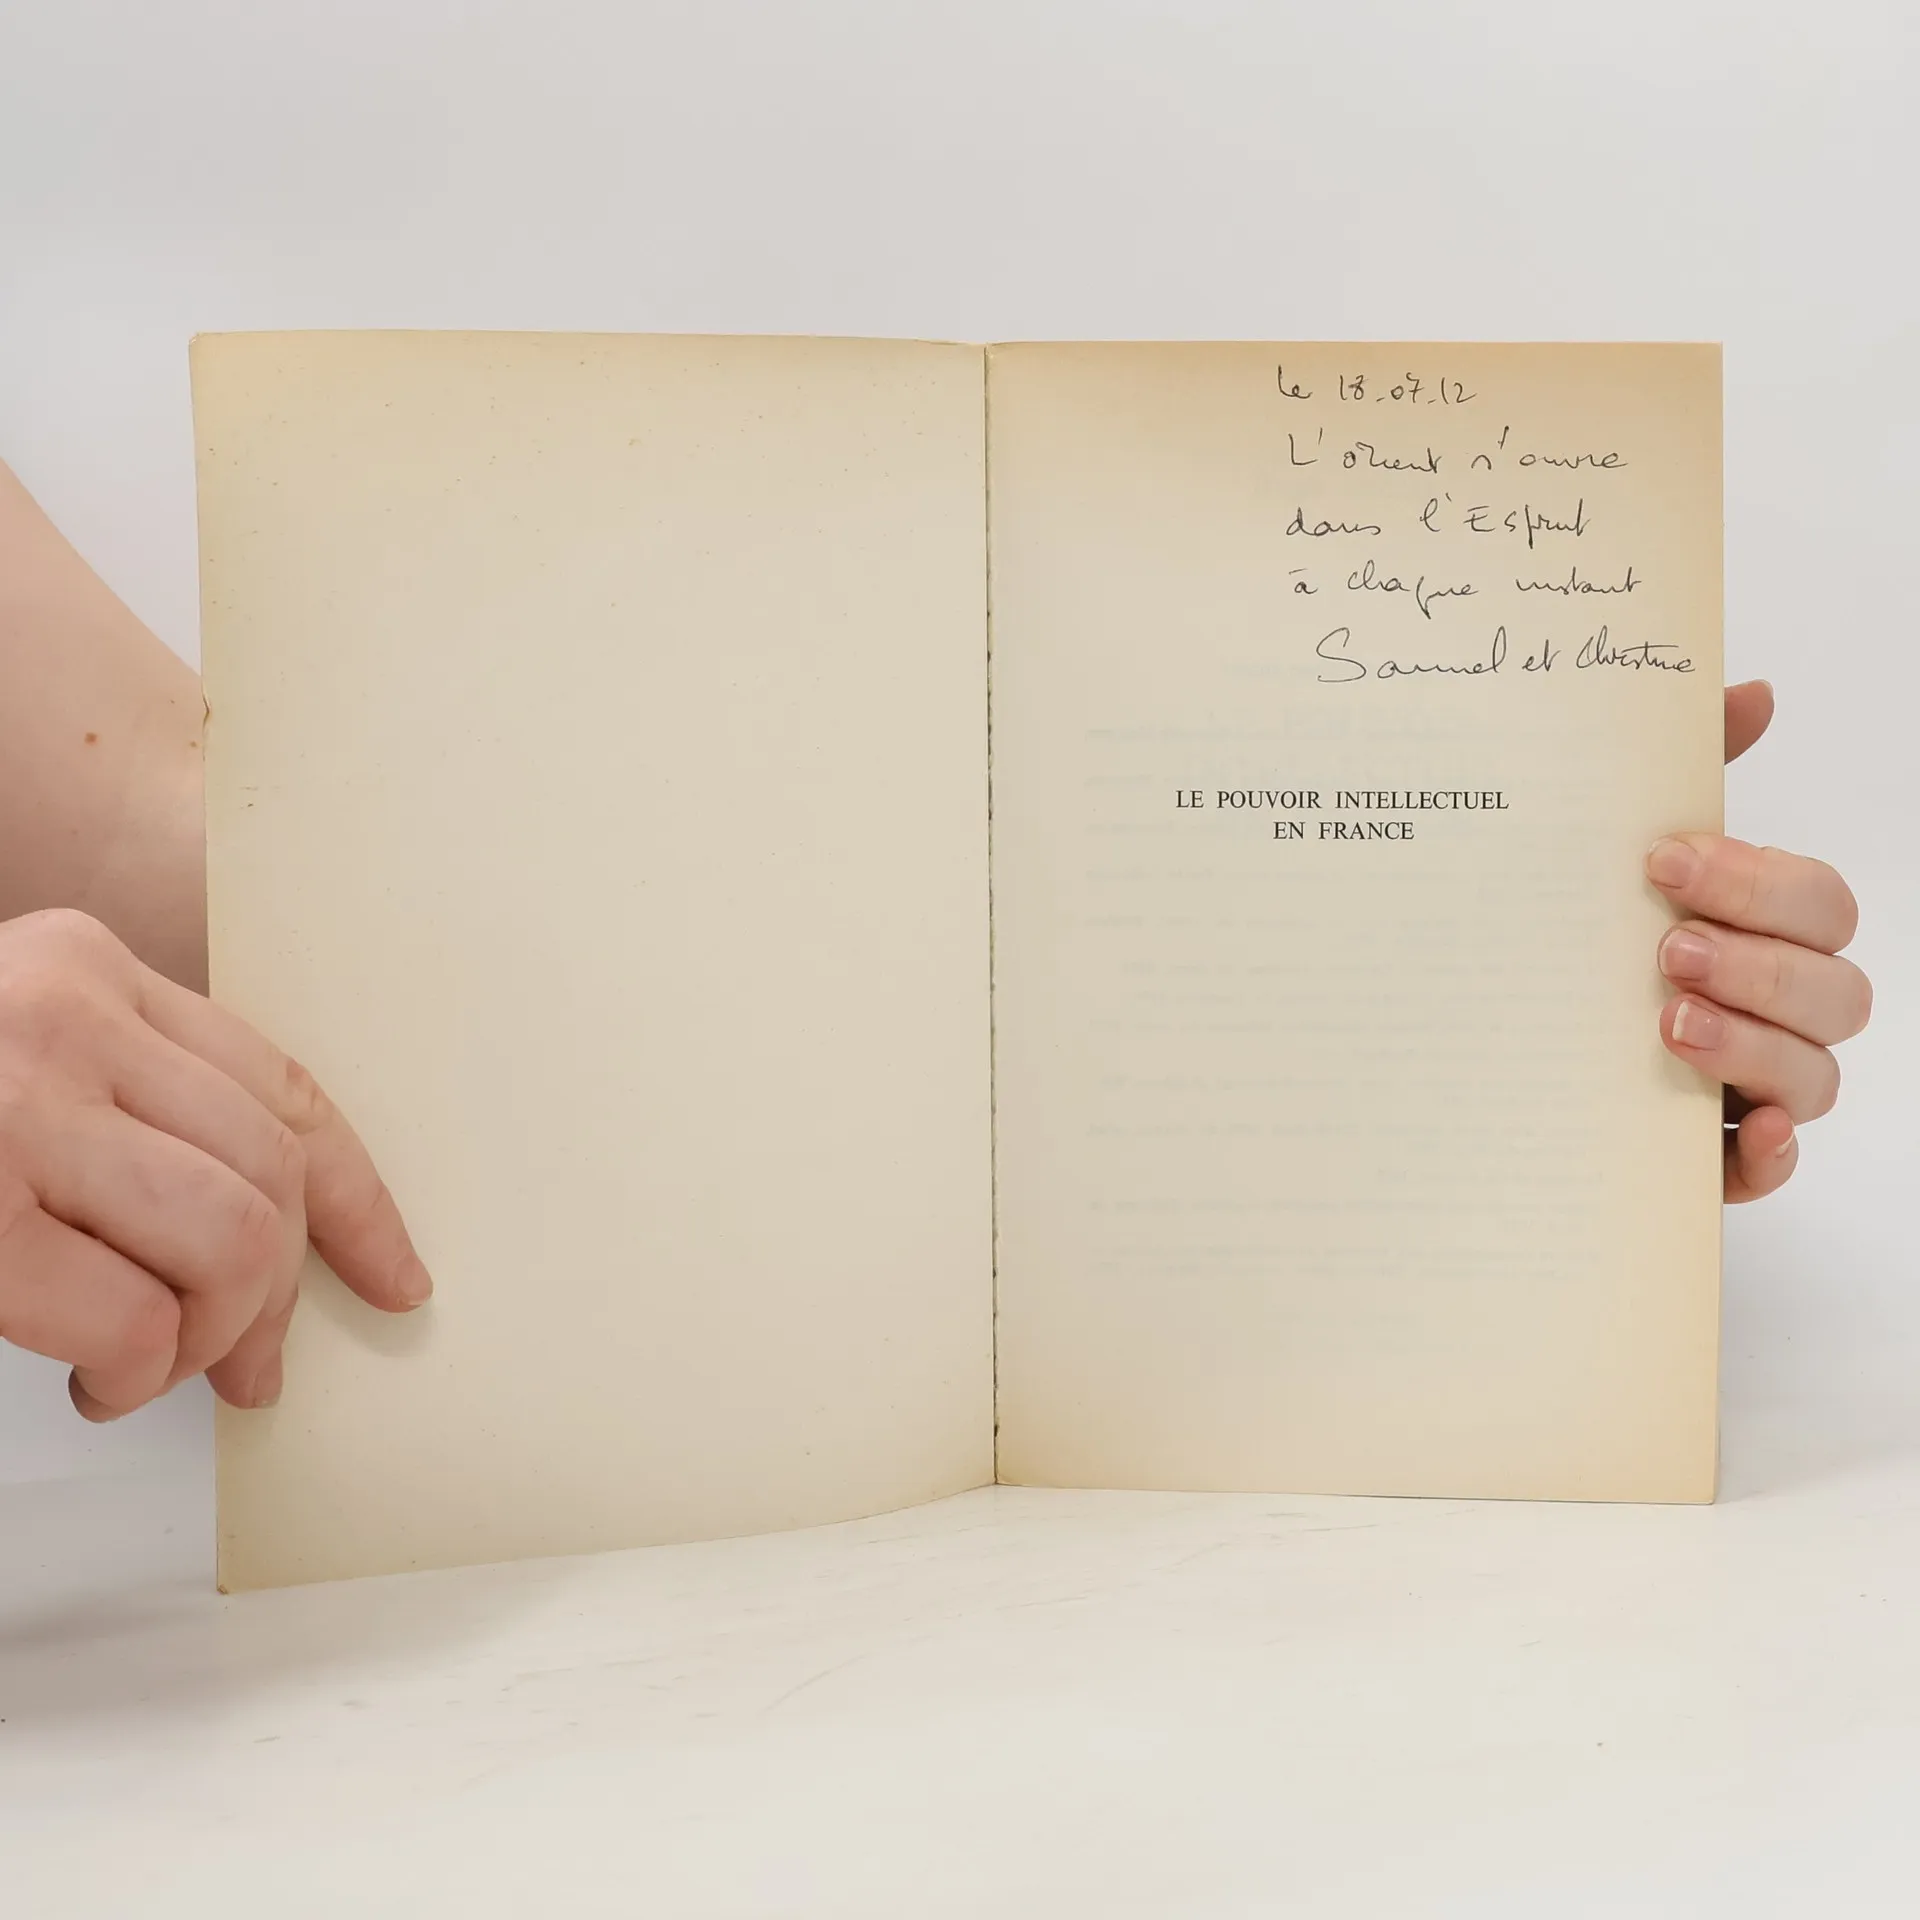 le 18-07-12
L'orient s'ouvre
dans l'Esprit
à chaque instant
Samuel et Christine
LE POUVOIR INTELLECTUEL
EN FRANCE